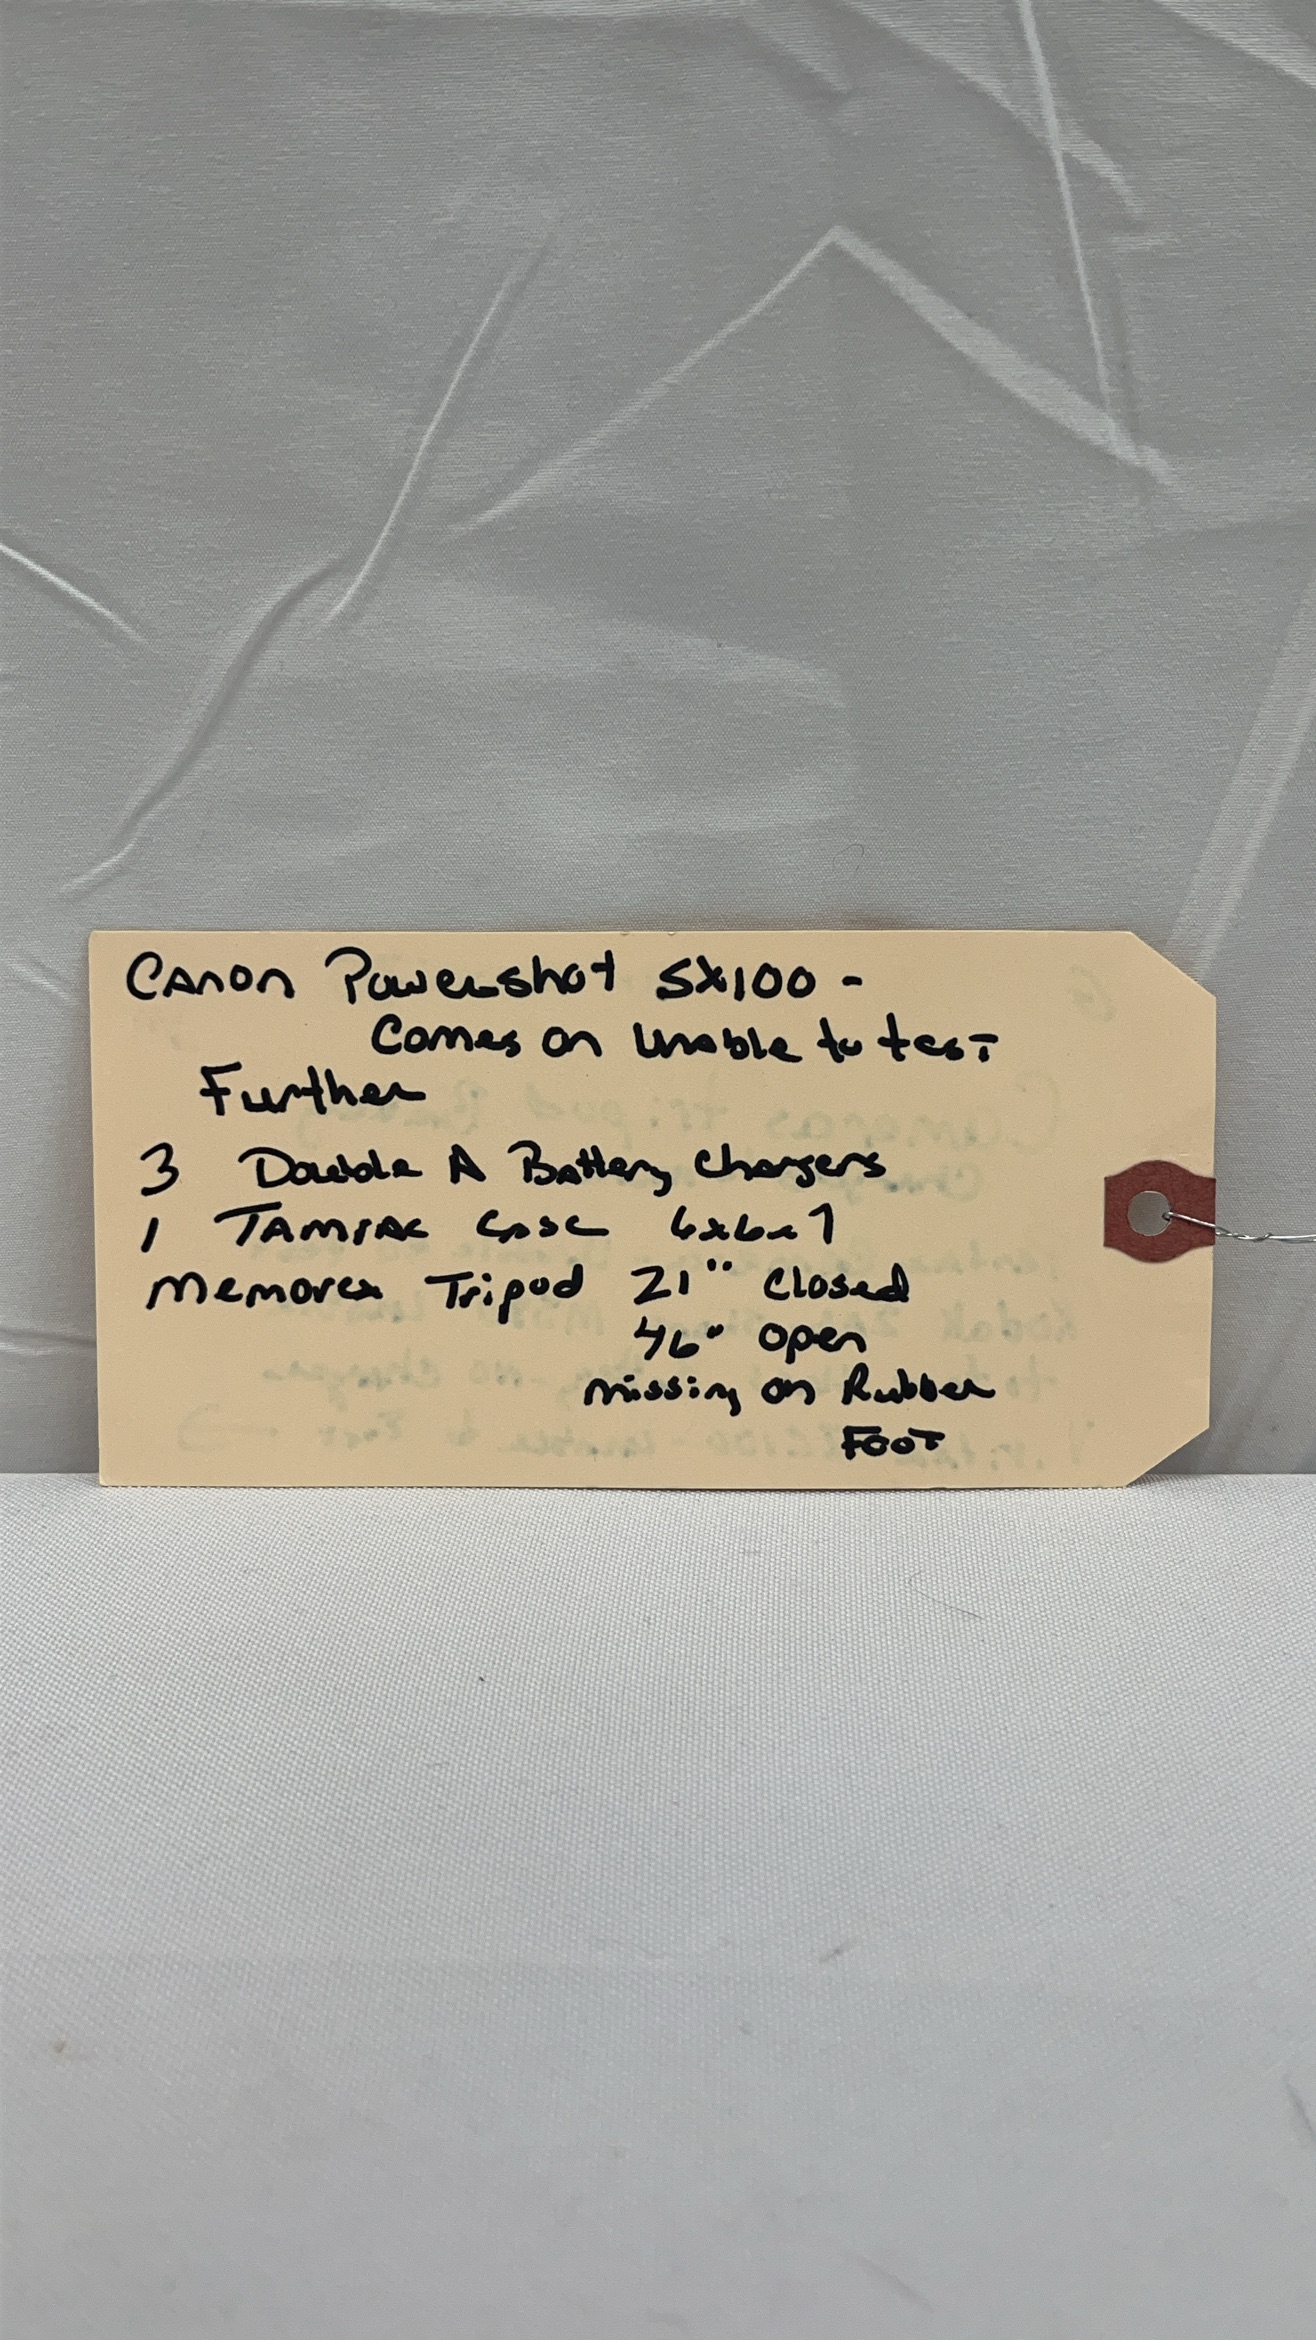 Canon Powershot SX100 -
Comes on Unable to test
Further
3 Double A Battery Chargers
1 TAMRAC Case 6x6x7
Memorex Tripod 21" Closed
46" open
missing on Rubber
FOOT